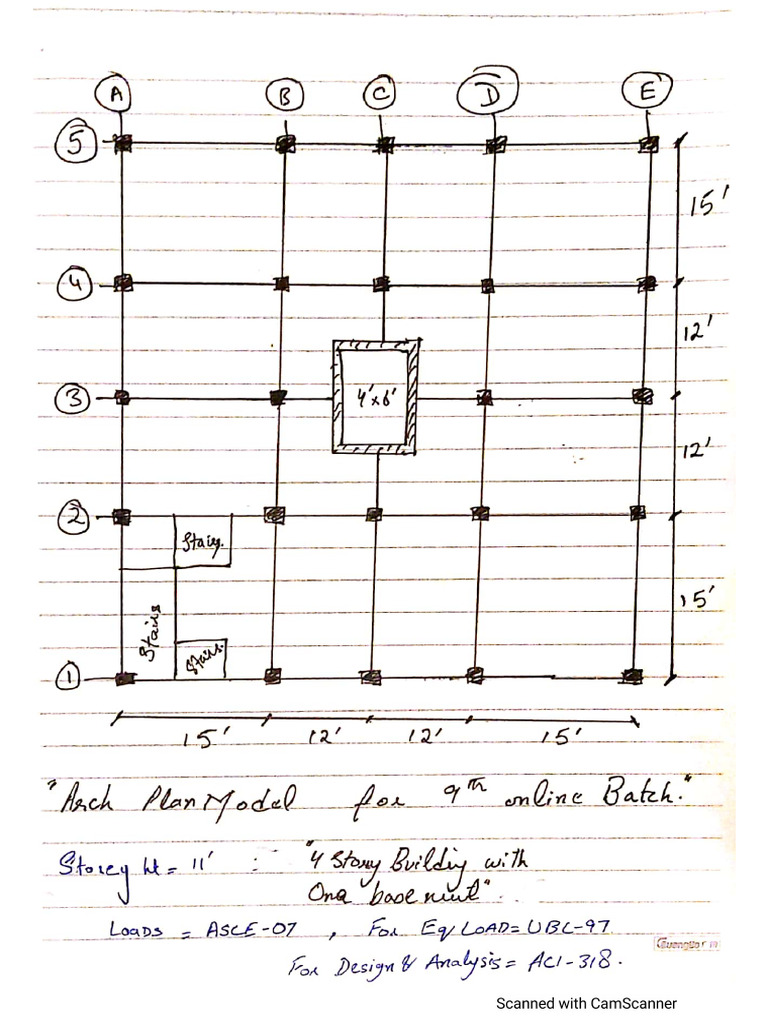 A B C D E
5
15'
4
12'
3
4'x6'
12'
2
Stairs.
15'
Stairs
Stairs.
1
15' 12' 12' 15'
"Arch Plan Model for 9th online Batch."
Storey ht = 11' : "4 Story Building with
One basement".
LOADS = ASCE-07 , For Eq LOAD = UBC-97
For Design & Analysis = ACI-318.
Scanned with CamScanner